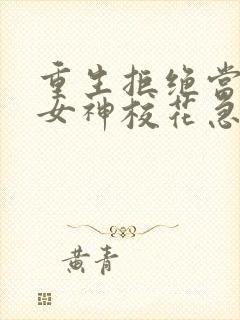 重生拒绝当
女神校花急
黄青